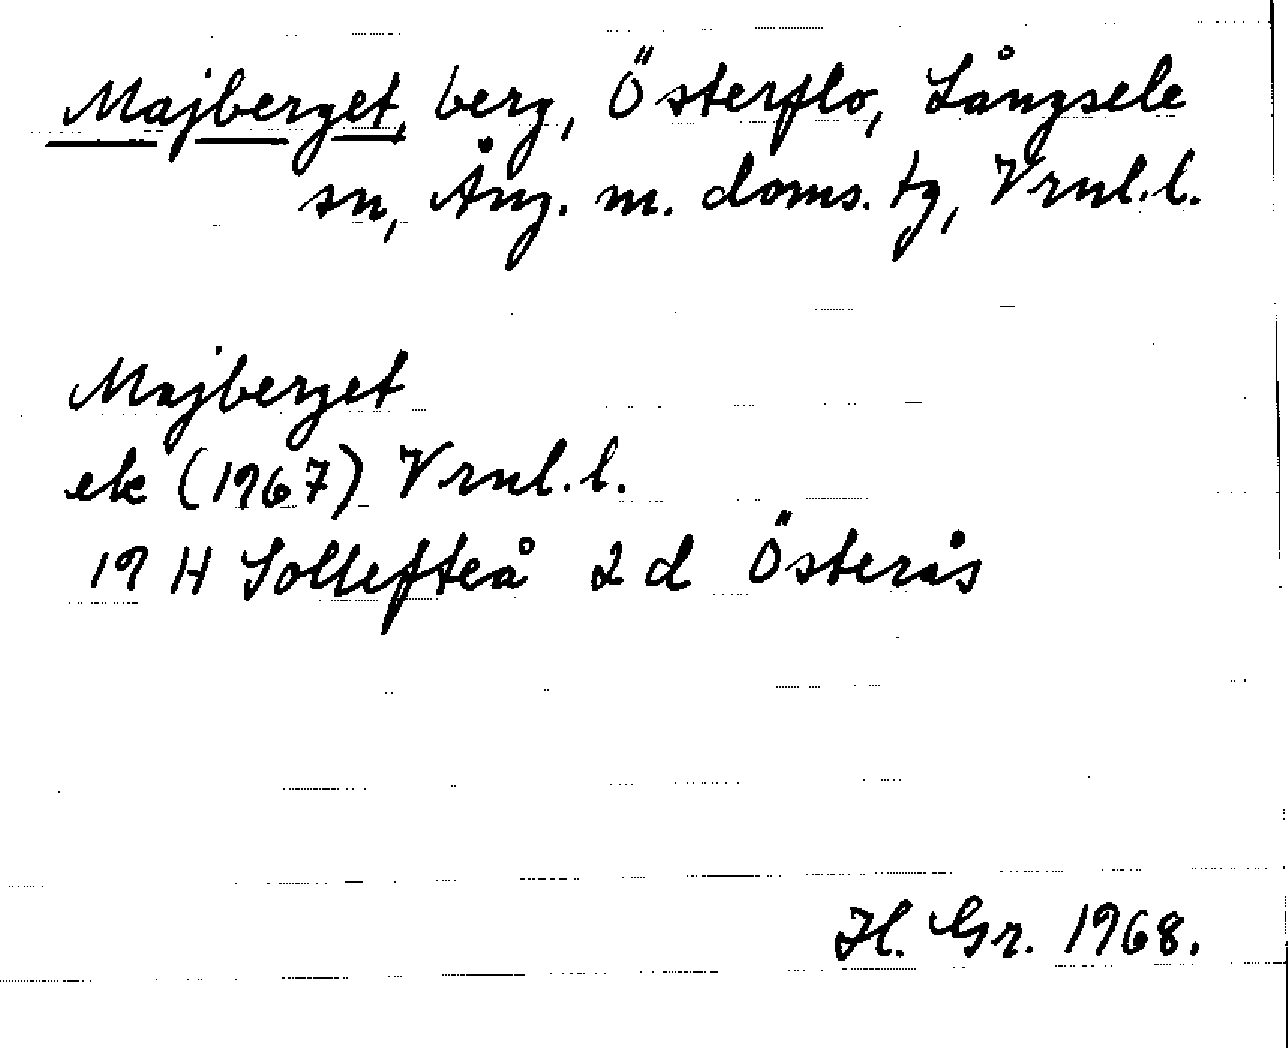 Majberget, berg, Österflo, Långsele
sn, Ång. m. doms. tg, Vrnl.l.
Majberget
ek (1967) Vrnl.l.
19 H Sollefteå 2 d Österås
H. Gr. 1968.